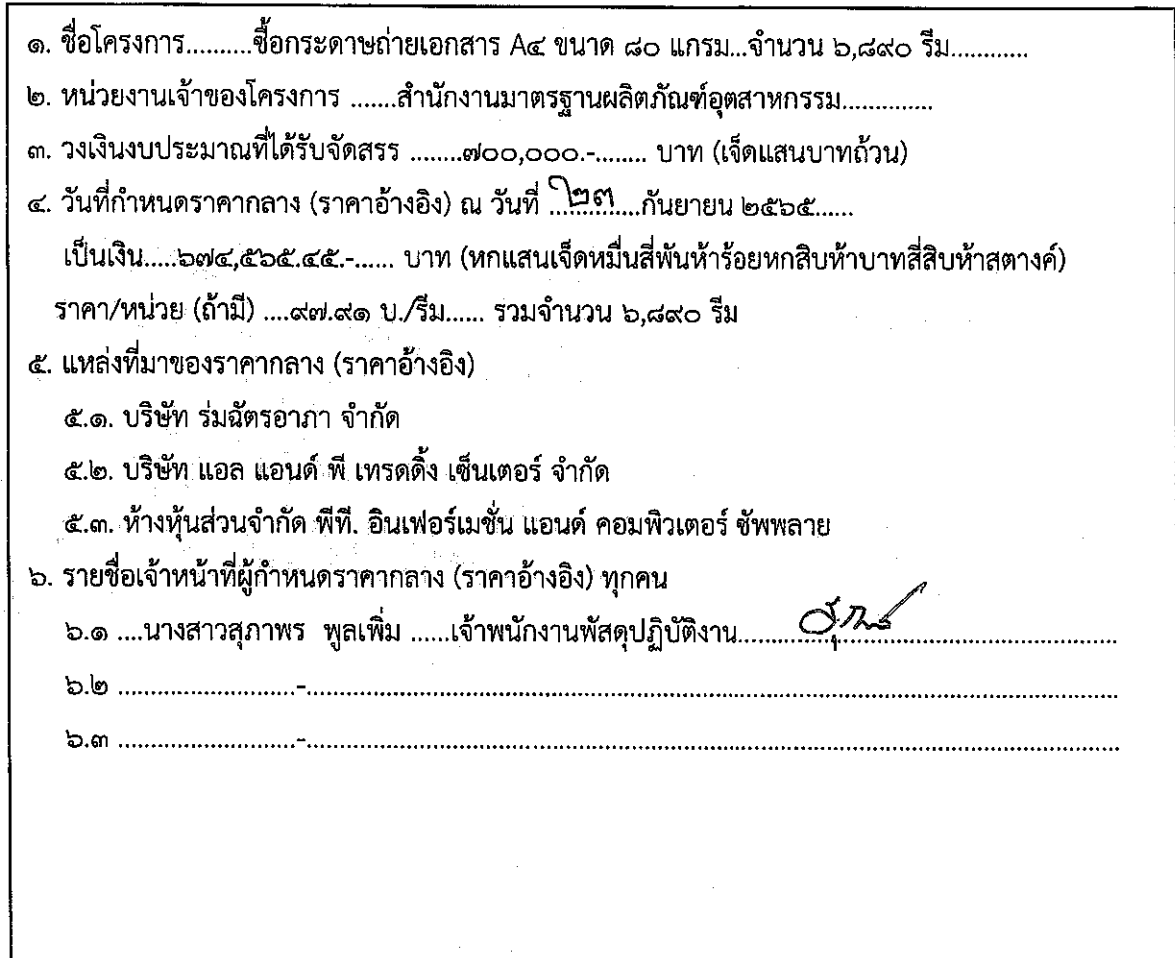 ๑. ชื่อโครงการ..........ซื้อกระดาษถ่ายเอกสาร A๔ ขนาด ๘๐ แกรม...จำนวน ๖,๘๙๐ รีม............
๒. หน่วยงานเจ้าของโครงการ .......สำนักงานมาตรฐานผลิตภัณฑ์อุตสาหกรรม..............
๓. วงเงินงบประมาณที่ได้รับจัดสรร ........๗๐๐,๐๐๐.-........ บาท (เจ็ดแสนบาทถ้วน)
๔. วันที่กำหนดราคากลาง (ราคาอ้างอิง) ณ วันที่ ...๒๓...กันยายน ๒๕๖๕......
เป็นเงิน.....๖๗๔,๕๖๕.๔๕.-...... บาท (หกแสนเจ็ดหมื่นสี่พันห้าร้อยหกสิบห้าบาทสี่สิบห้าสตางค์)
ราคา/หน่วย (ถ้ามี) ....๙๗.๙๑ บ./รีม...... รวมจำนวน ๖,๘๙๐ รีม
๕. แหล่งที่มาของราคากลาง (ราคาอ้างอิง)
๕.๑. บริษัท ร่มฉัตรอาภา จำกัด
๕.๒. บริษัท แอล แอนด์ พี เทรดดิ้ง เซ็นเตอร์ จำกัด
๕.๓. ห้างหุ้นส่วนจำกัด พีที. อินเฟอร์เมชั่น แอนด์ คอมพิวเตอร์ ซัพพลาย
๖. รายชื่อเจ้าหน้าที่ผู้กำหนดราคากลาง (ราคาอ้างอิง) ทุกคน
๖.๑ ....นางสาวสุภาพร พูลเพิ่ม ......เจ้าพนักงานพัสดุปฏิบัติงาน..........
๖.๒ ...........................-..........................................................................
๖.๓ ...........................-..........................................................................